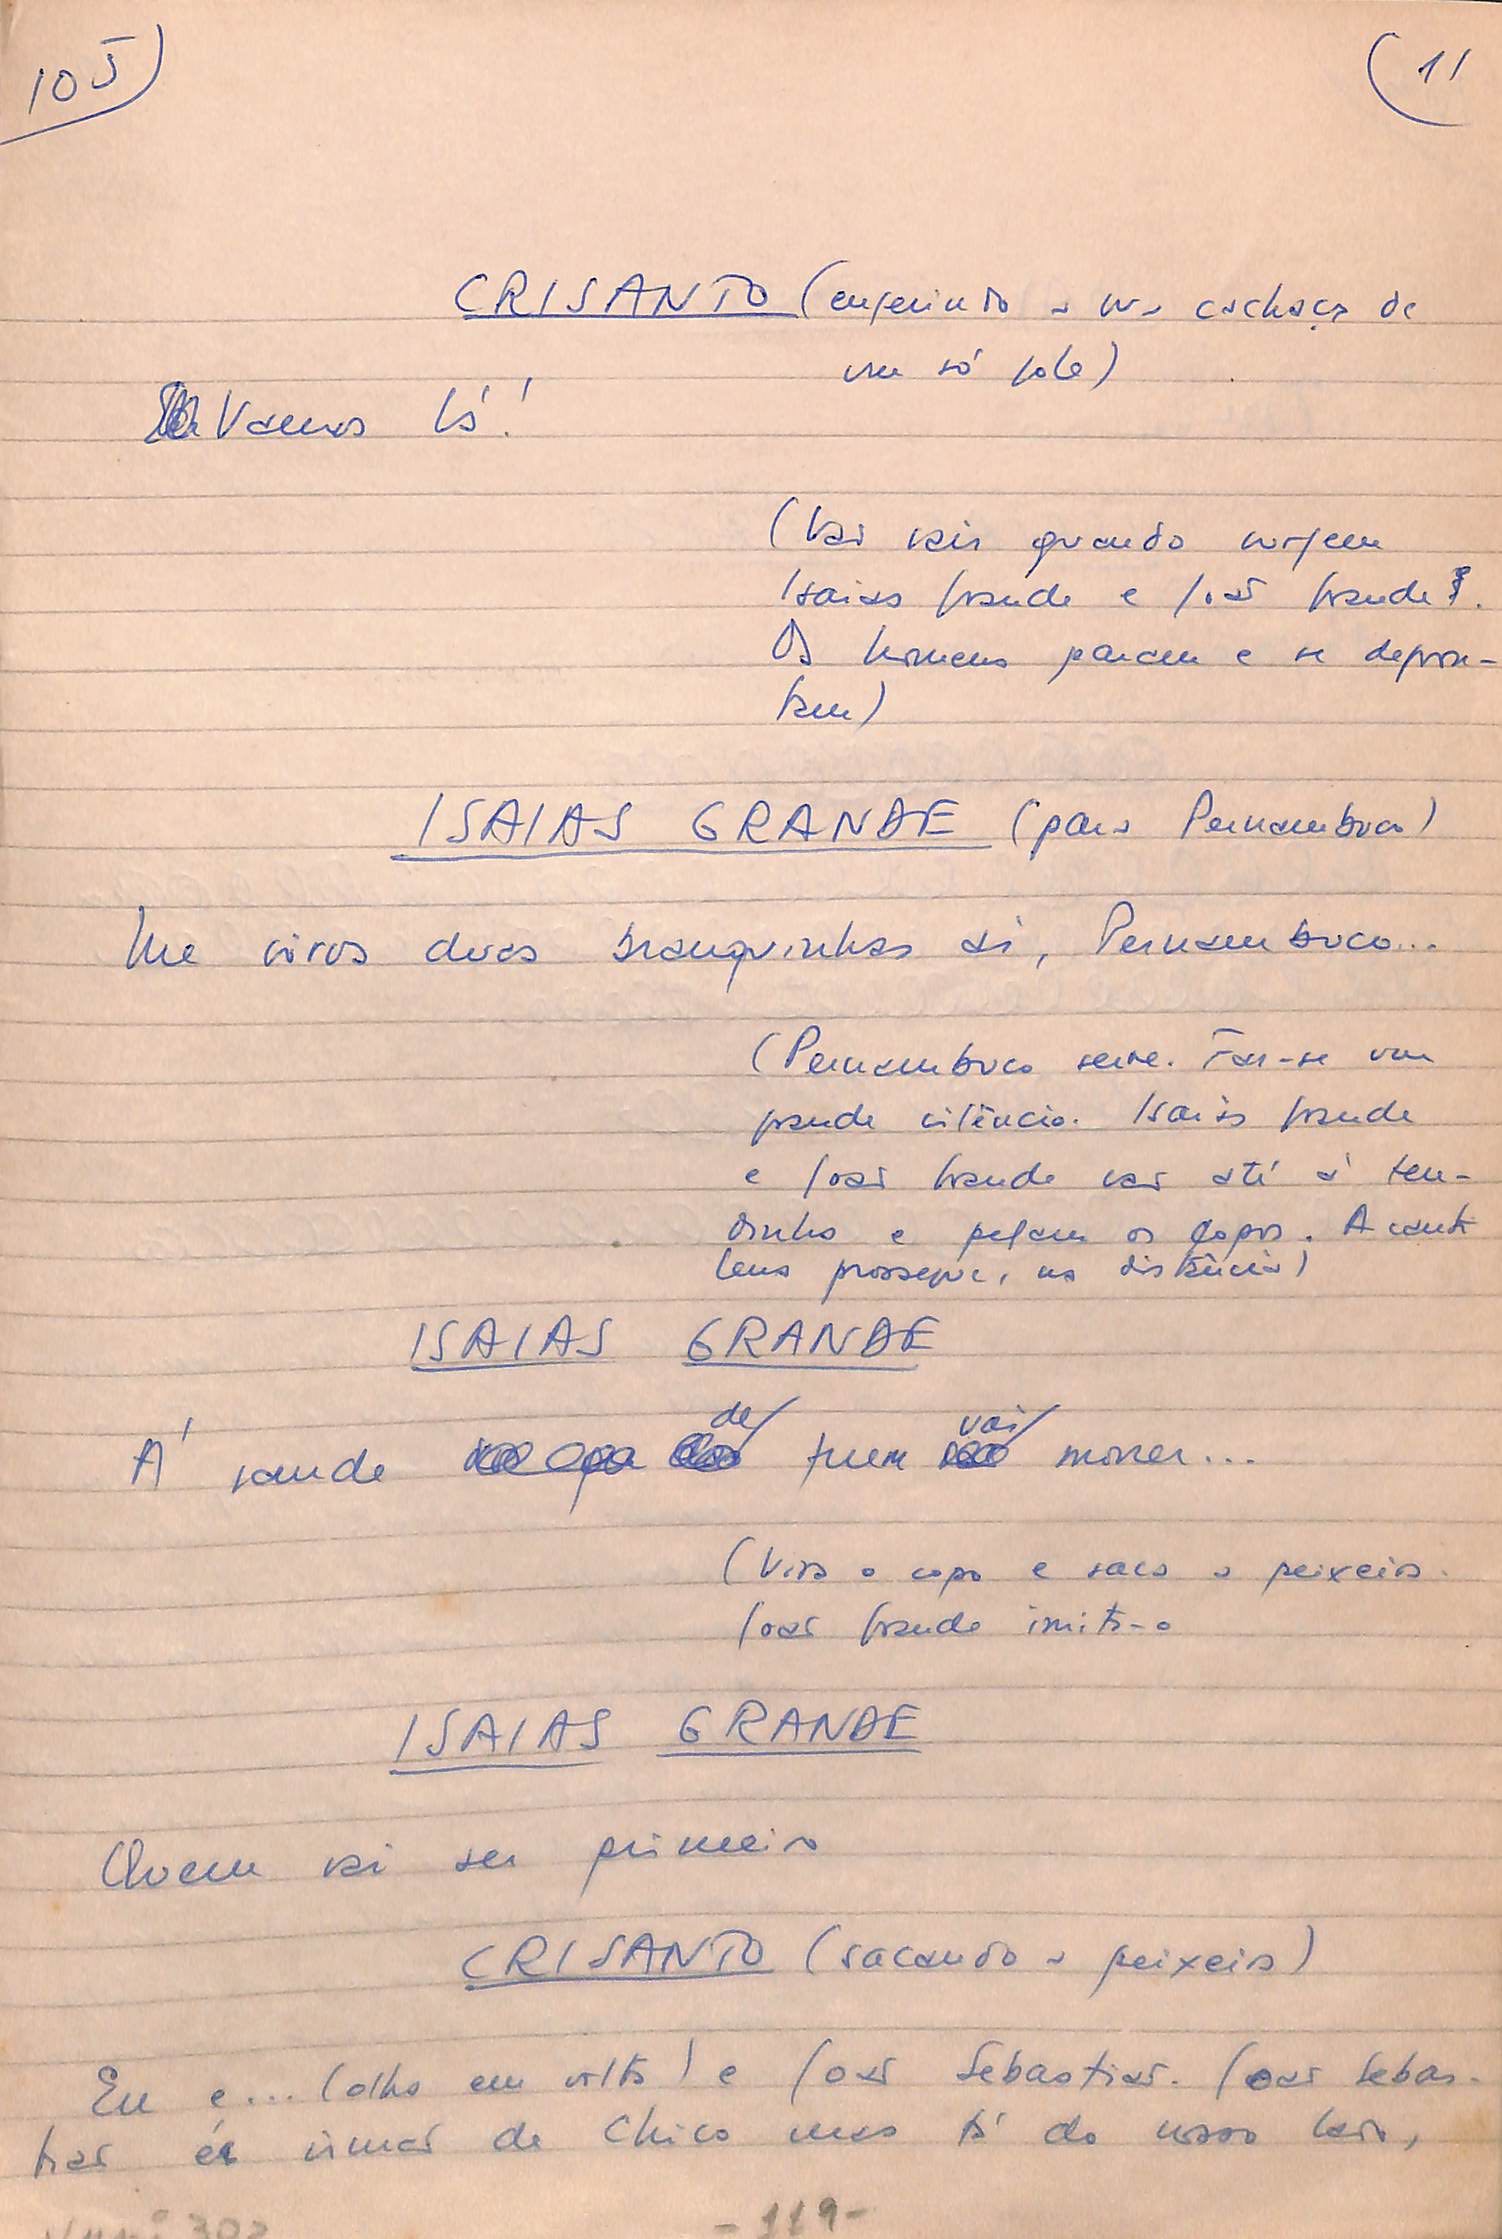 105
11
CRISANTO (engerindo a sua cachaça de
um só gole)
Vamos lá!
(Vão sair quando surgem
Isaias Grande e João Grande.
Os homens param e se defron-
tam)
ISAIAS GRANDE (para Pernambuco)
Me viros duas branquinhas aí, Pernambuco...
(Pernambuco serve. Faz-se um
grande silêncio. Isaias Grande
e João Grande vão até à ten-
dinha e pegam os copos. A canti
lena prossegue, na distância)
ISAIAS GRANDE
de vai
Á saude quem morrer...
(Vira o copo e saca a peixeira.
João Grande imita-o
ISAIAS GRANDE
Quem vai ser primeiro
CRISANTO (sacando a peixeira)
Eu e... (olha em volta) e João Sebastião. João Sebas-
tião é irmão de Chico mas tá do nosso lado,
-119-